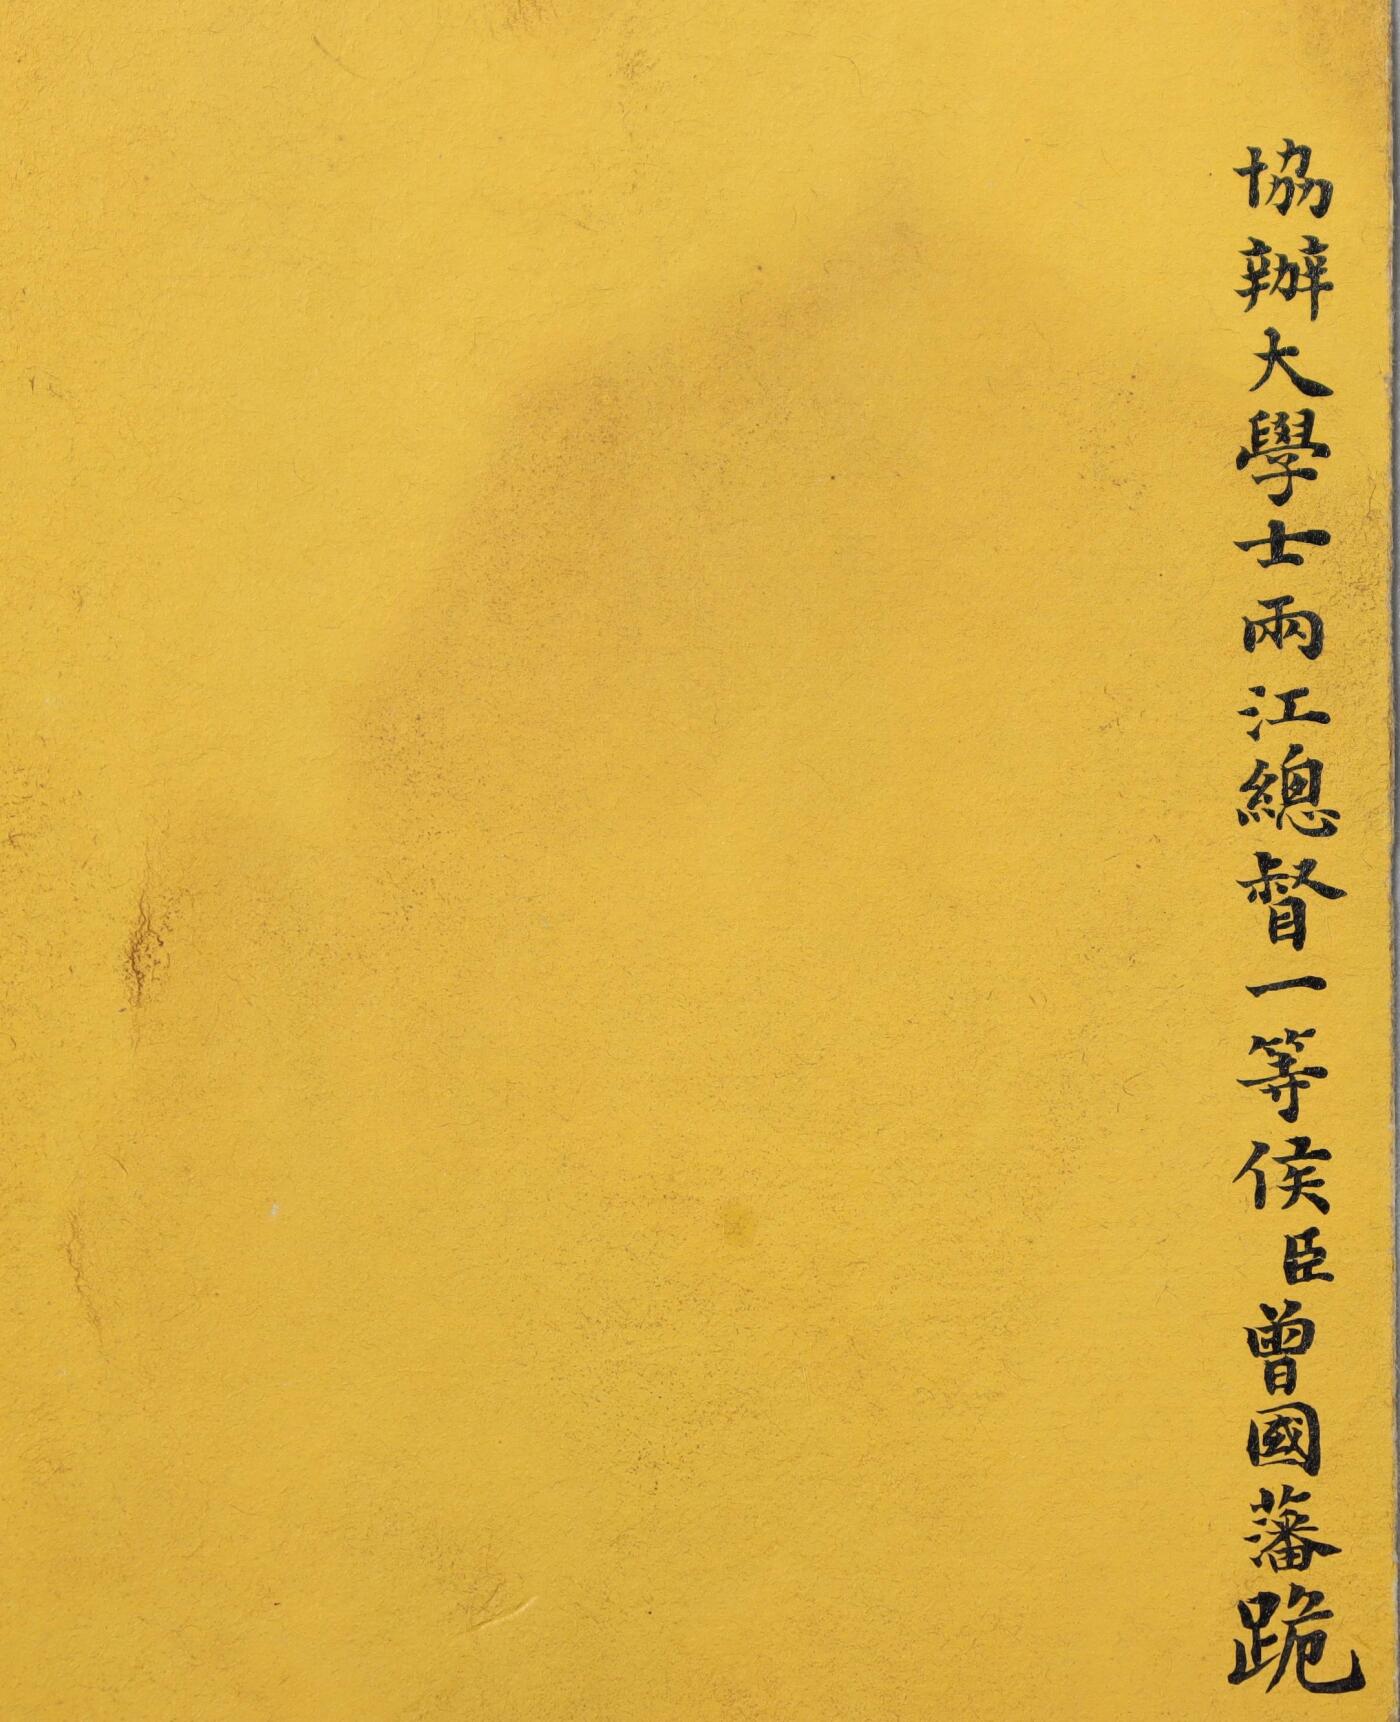 協辦大學士兩江總督一等侯臣曾國藩跪